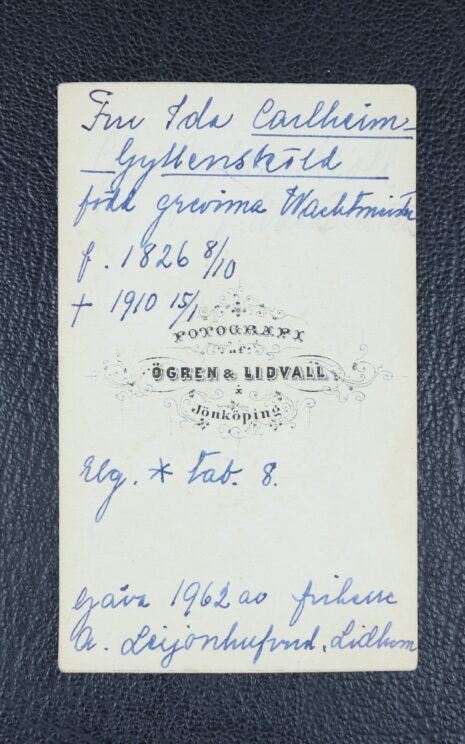 Fru Ida Carlheim-
Gyllensköld
född grevinna Wachtmeister
f. 1826 8/10
+ 1910 15/1
FOTOGRAFI
af
ÖGREN & LIDVALL
i
Jönköping
Elg. * tab. 8.
Gåva 1962 av friherre
A. Leijonhufvud, Lidhem